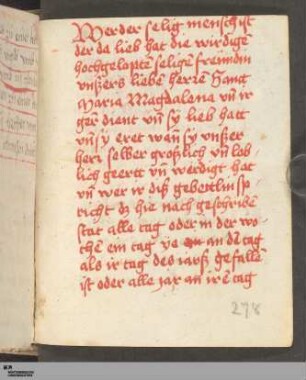 Wer der selig mensch ist
der da lieb hat die wirdigē
hochgelopte seligē freundin
vnsers liebē herrē Sanct
Maria Magdalena vn̄ ir
gern dient vn̄ sy lieb hatt
vn̄ sy eret wan̄ sy vnßer
herr selber größlich vn̄ lob
lich geert vn̄ werdigt hat
vn̄ wer ir diß gebettlin sp
richt dz hie nach geschribē
stat alle tag oder in der wo
chē ein tag ye an dē tag
als ir tag des iarß gefallē
ist oder alle jar an irē tag
278